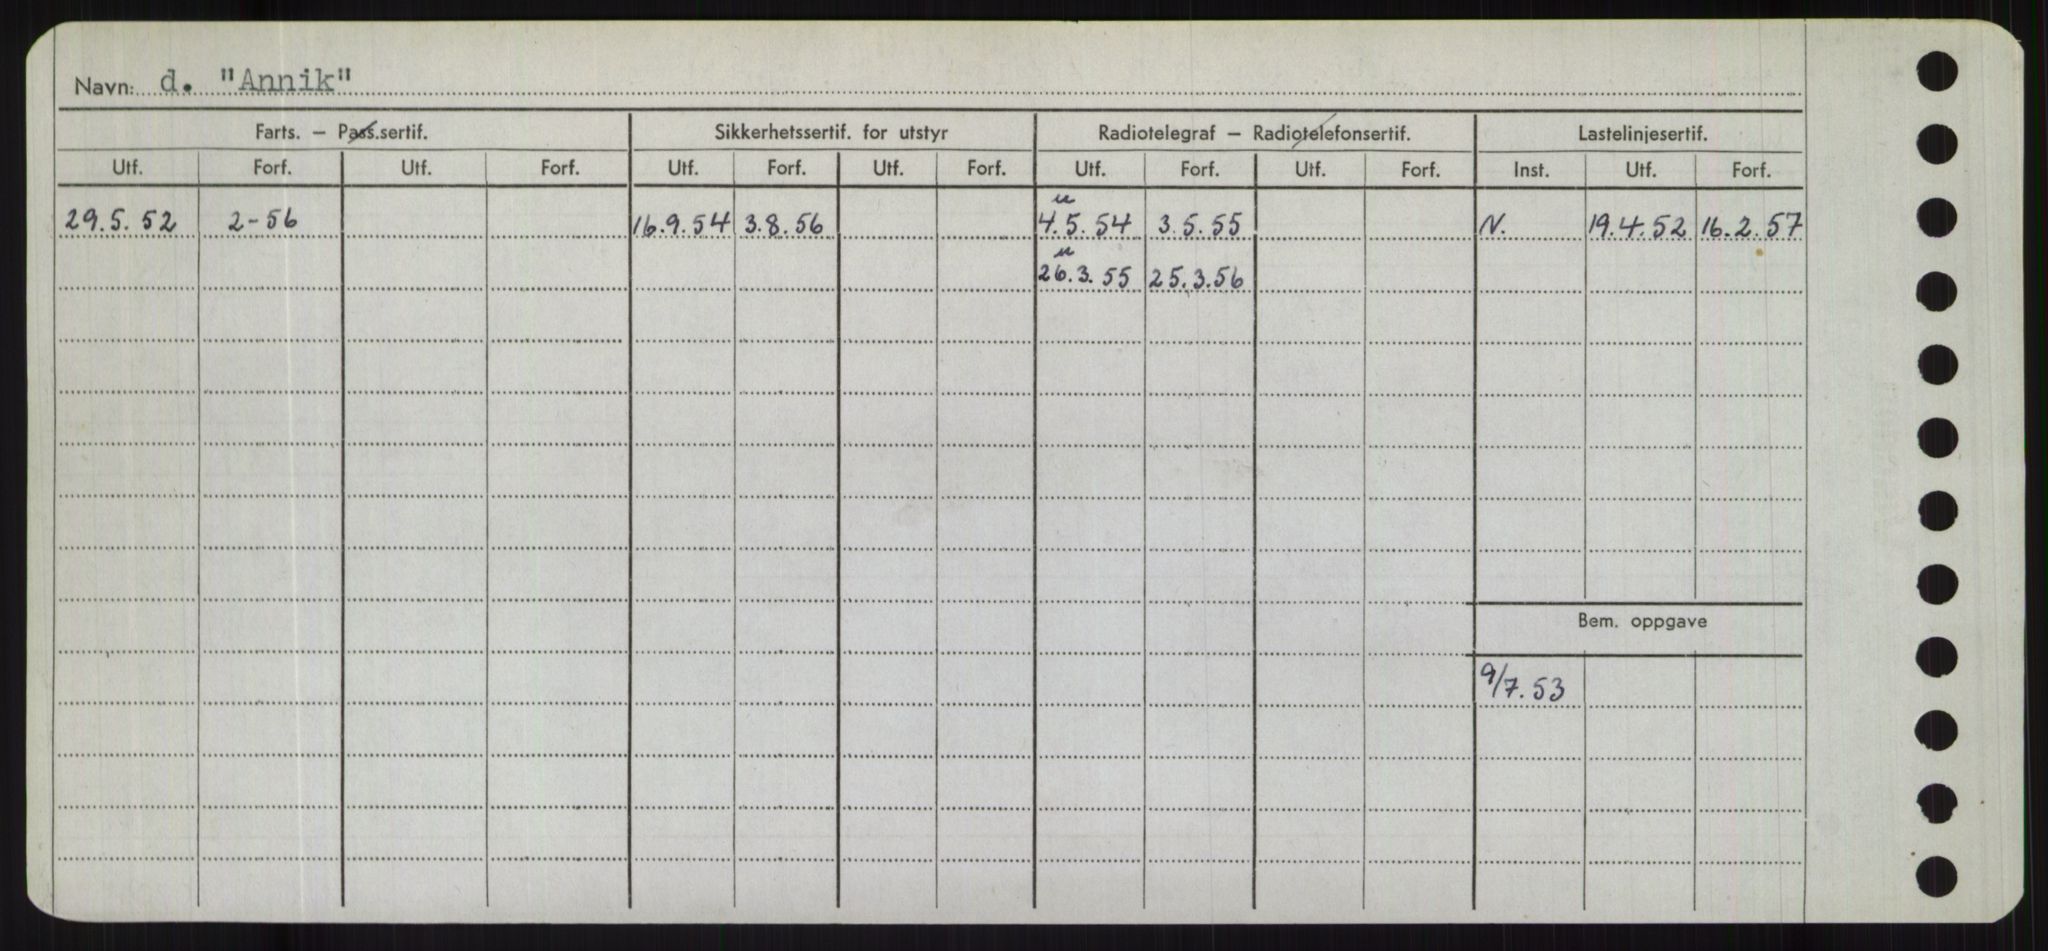 Navn: d. "Annik"
Farts. – Pass.sertif. Sikkerhetssertif. for utstyr Radiotelegraf – Radiotelefonsertif. Lastelinjesertif.
Utf. Forf. Utf. Forf. Utf. Forf. Utf. Forf. Utf. Forf. Utf. Forf. Inst. Utf. Forf.
u
29.5.52 2-56 16.9.54 3.8.56 4.5.54 3.5.55 N. 19.4.52 16.2.57
u
26.3.55 25.3.56
Bem. oppgave
9/7.53